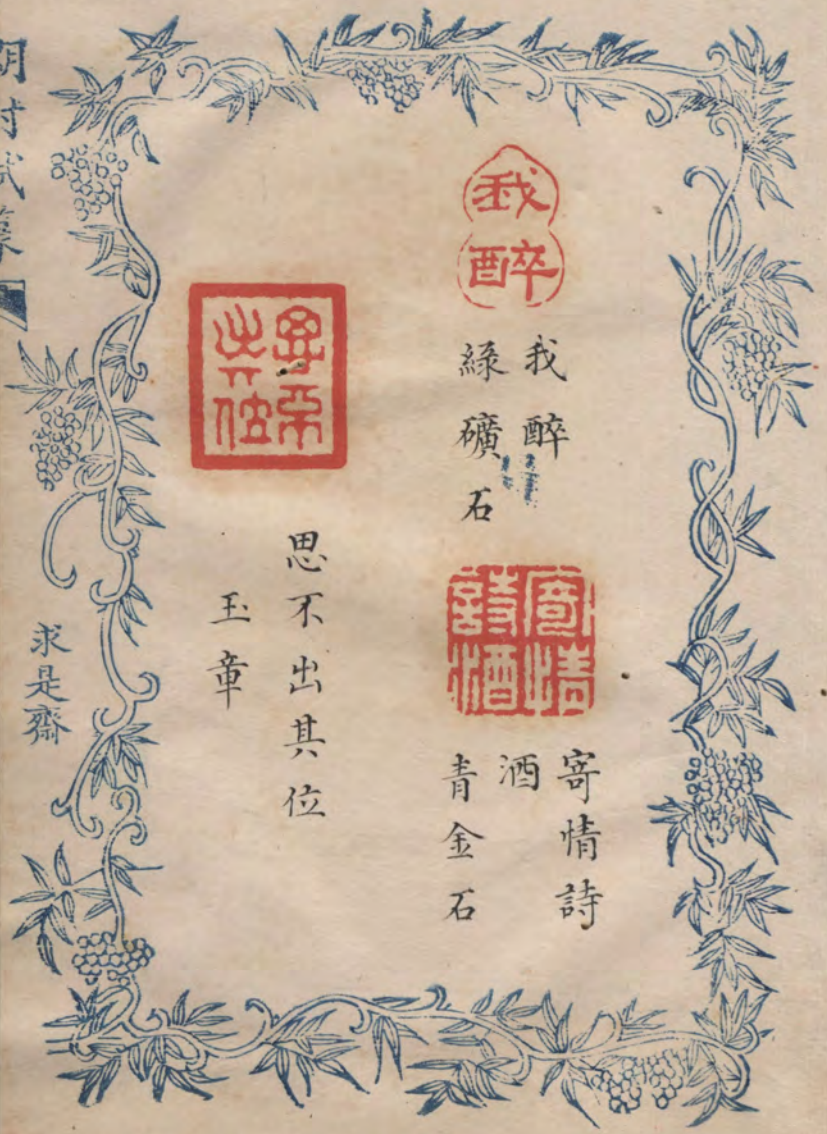 我
醉
我醉
綠礦石
寄情
詩酒
寄情詩
酒
青金石
思不
出其位
思不出其位
玉章
求是齋